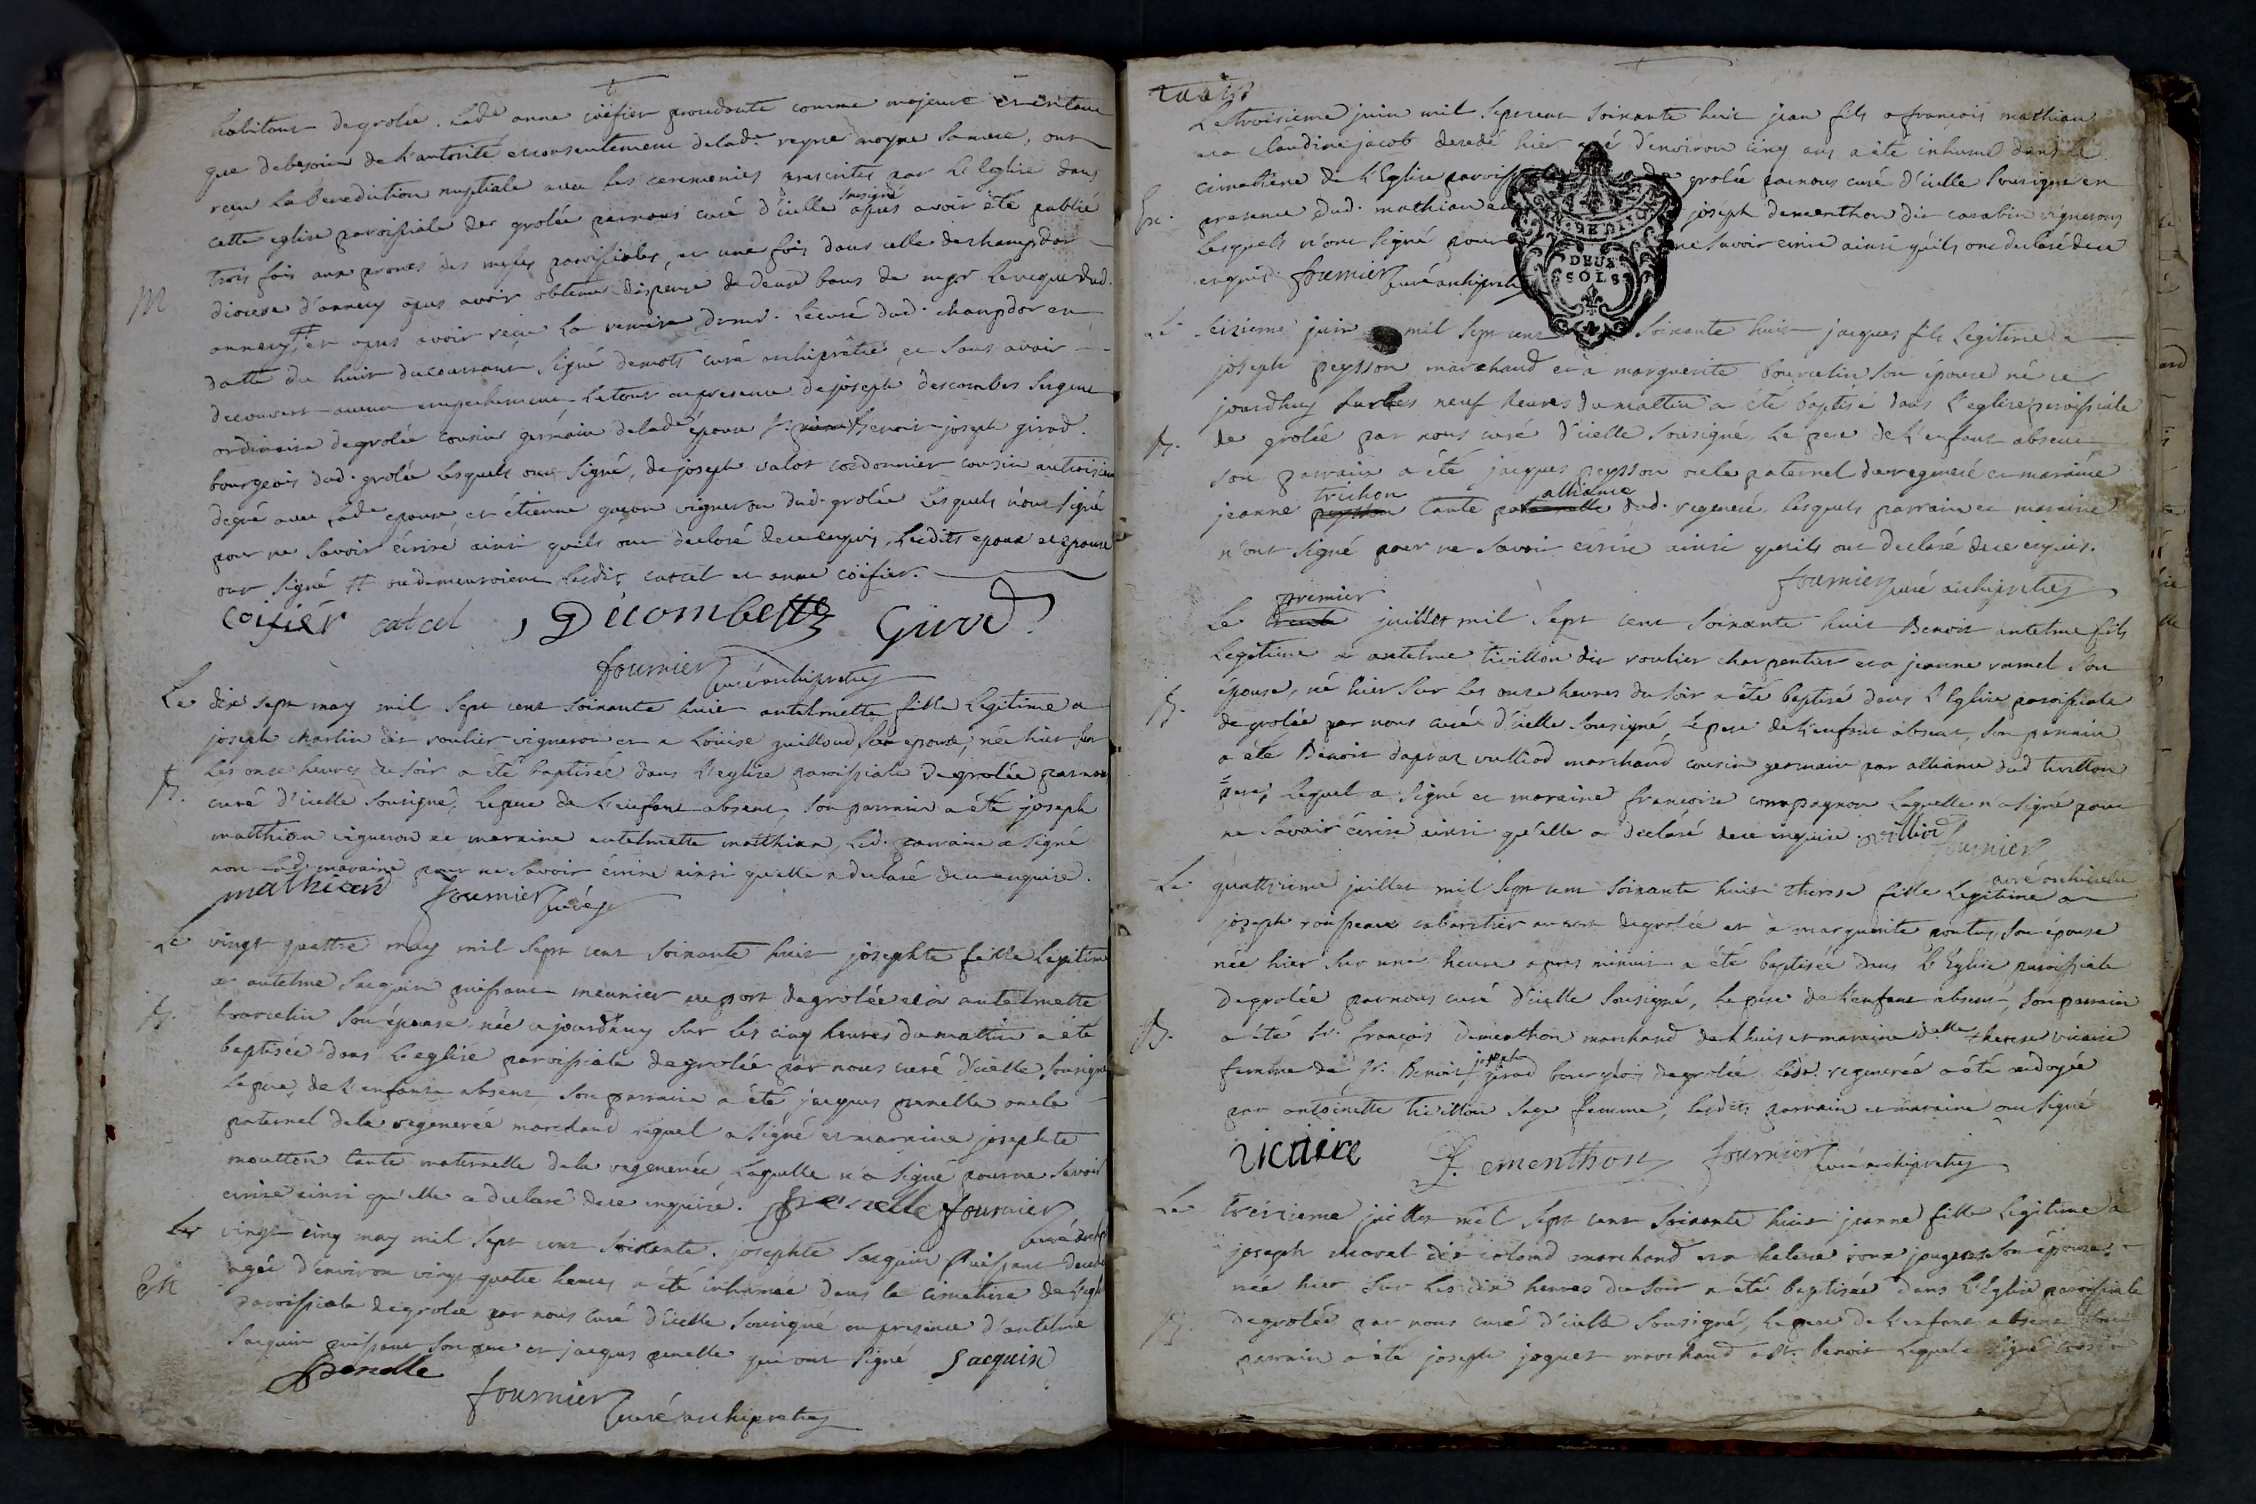 habitant de grolée. Lad.e anne coiffier procedante comme majeure et en tant
que de besoin de l'autorité et consentement de lad.e reyne moyne sa mere, ont
reçu la benediction nuptiale avec les ceremonies prescrites par l'Eglise dans
cette eglise paroissiale de grolée par nous curé d'icelle sousigné apres avoir été publié
trois fois aux prones des messes paroissiales, et une fois dans celle de champdor
M
diocese d'annecy apres avoir obtenu dispense de deux bans de mgr l'eveque dud.
annecy, et apres avoir reçu la remise de mr. le curé dud. champdor en
datte du huit du courrant signé demots curé archiprêtre et sans avoir
decouvert aucun empechement le tout en presence de joseph descombes sergent
ordinaire de grolée cousin germain de lad.e épouse sr. benoit joseph girod
bourgeois dud. grolée lesquels ont signé, de joseph valot cordonnier cousin au troisieme
degré avec lad.e epouse et étienne vigneron dud. grolée lesquels n'ont signé
pour ne savoir écrire ainsi qu'ils ont declaré de ce enquis, lesdits epoux et epouse
ont signé # ou demeuroient lesdits catcel et anne coiffier.
Coifiér catcel Décombettes Girod
fournier curé archiprêtre
Le dix sept may mil sept cent soixante huit antelmette fille legitime a
joseph charlin dit roulier vigneron et a Loüise guilloud son épouse, née hier sur
les onze heures du soir a été baptisée dans l'eglise paroissiale de grolée par nous
B.
curé d'icelle sousigné, le pere de l'enfant absent, son parrain a été joseph
matthian vigneron et maraine antelmette matthian, led. parrain a signé
non lad. maraine pour ne savoir écrire ainsi qu'elle a declaré de ce enquise.
mathian fournier curé
Le vingt quattre may mil sept cent soixante huit josephte fille legitime
a antelme Jacquin puissant meunier au port de grolée et a antelmette
B.
bourcelin son épouse née ce jourd'huy sur les cinq heures du mattin a été
baptisée dans l'eglise paroissiale de grolée par nous curé d'icelle sousigné
le pere de l'enfant absent son parrain a été jacques prenelle oncle
paternel de la regenerée marchand lequel a signé et maraine josephte
moutton tante maternelle de la regenerée laquelle n'a signé pour ne savoir
écrire ainsi qu'elle a declaré de ce enquise. Prenelle fournier
curé archip.
Le vingt cinq may mil sept cent soixante. josephte Jacquin puissant decedée
agée d'environ vingt quatre heures a été inhumée dans le cimetiere de l'eglise
paroissiale de grolée par nous curé d'icelle sousigné en presence d'antelme
Jacquin puissant son pere et jacques prenelle qui ont signé Jacquin
prenelle
fournier curé archiprêtre
Le troisieme juin mil sept cent soixante huit jean fils a françois mathian
et a Claudine jacob decedé hier agé d'environ cinq ans a été inhumé dans le
cimetière de l'Eglise paroissiale de grolée par nous curé d'icelle sousigné en
presence dud. mathian et joseph dementhon dit carabin vignerons
lesquels n'ont signé pour ne savoir écrire ainsi qu'ils ont declaré de ce
enquis. fournier curé archiprêtre
DEUX
SOLS
Le seizieme juin mil sept cent soixante huit jacques fils legitime a
joseph peysson marchand et a marguerite bourcelin son épouse né ce
jourdhuy sur les neuf heures du mattin a été baptisé dans l'eglise paroissiale
B.
de grolée par nous curé d'icelle sousigné, le pere de l'enfant absent
son parrain a été jacques peysson oncle paternel du regeneré et maraine
jeanne trichon tante par alliance dud. regeneré, lesquels parrain et maraine
n'ont signé pour ne savoir écrire ainsi qu'ils ont declaré de ce enquis.
fournier curé archiprêtre
Le premier juillet mil sept cent soixante huit Benoit antelme fils
legitime a antelme tivillon dit roulier charpentier et a jeanne ramel son
épouse, né hier sur les onze heures du soir a été baptisé dans l'Eglise paroissiale
B.
de grolée par nous curé d'icelle sousigné, le pere de l'enfant absent, son parrain
a été Benoit dapraz vulliod marchand cousin germain par alliance dud tivillon
pere, lequel a signé et maraine françoise compagnon laquelle n'a signé pour
ne savoir écrire ainsi qu'elle a declaré de ce enquise. vulliod fournier
curé archiprêtre
Le quattrieme juillet mil sept cent soixante huit therese fille legitime a
joseph rousseau cabaretier au port de grolée et à marguerite pontus son épouse
née hier sur une heure apres minuit a été baptisée dans l'Eglise paroissiale
de grolée par nous curé d'icelle sousigné, le pere de l'enfant absent, son parrain
B.
a été sr. françois dementhon marchand de Lhuis et maraine d.elle therese vicaire
femme de sr. Benoit joseph girod bourgeois de grolée. lad. regenerée a été ondoyée
par antoinette tivillon sage femme, lesdits parrain et maraine ont signé
vicaire F. Dementhon fournier curé archiprêtre
Le treizieme juillet mil sept cent soixante huit jeanne fille legitime a
joseph morel dit marchand et a helene son épouse,
née hier sur les dix heures du soir a été baptisée dans l'Eglise paroissiale
B.
de grolée par nous curé d'icelle sousigné, le pere de l'enfant absent son
parrain a été joseph joguet marchand a st. benoit lequel a signé